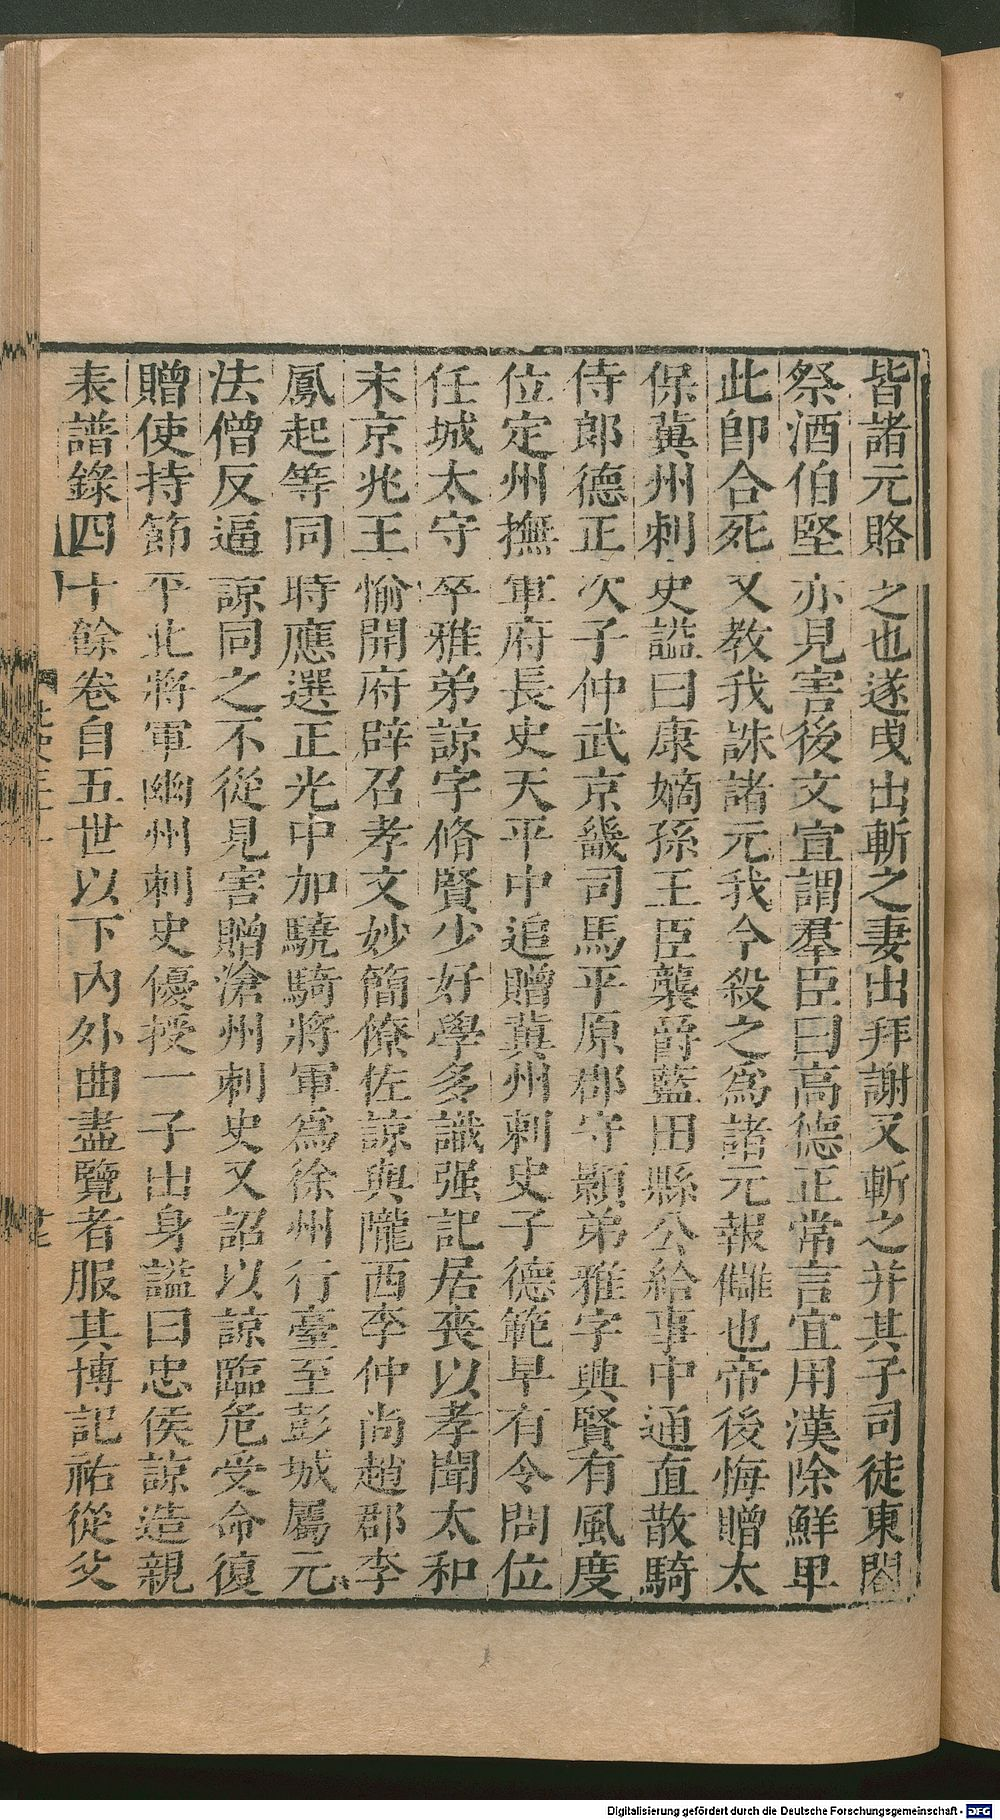 皆諸元賂之也遂曳出斬之妻出拜謝又斬之并其子司徒東閣
祭酒伯堅亦見害後文宣謂羣臣曰高德正常言宜用漢除鮮卑
此卽合死又教我誅諸元我今殺之爲諸元報讎也帝後悔贈太
保冀州刺史諡曰康嫡孫王臣襲爵藍田縣公給事中通直散騎
侍郎德正次子仲武京畿司馬平原郡守顯弟雅字興賢有風度
位定州撫軍府長史天平中追贈冀州刺史子德範早有令問位
任城太守卒雅弟諒字脩賢少好學多識强記居喪以孝聞太和
末京兆王愉開府辟召孝文妙簡僚佐諒與隴西李仲尚趙郡李
鳳起等同時應選正光中加驍騎將軍爲徐州行臺至彭城屬元
法僧反逼諒同之不從見害贈滄州刺史又詔以諒臨危受命復
贈使持節平北將軍幽州刺史優授一子出身諡曰忠侯諒造親
表譜錄四十餘卷自五世以下內外曲盡覽者服其博記祐從父
Digitalisierung gefördert durch die Deutsche Forschungsgemeinschaft - DFG